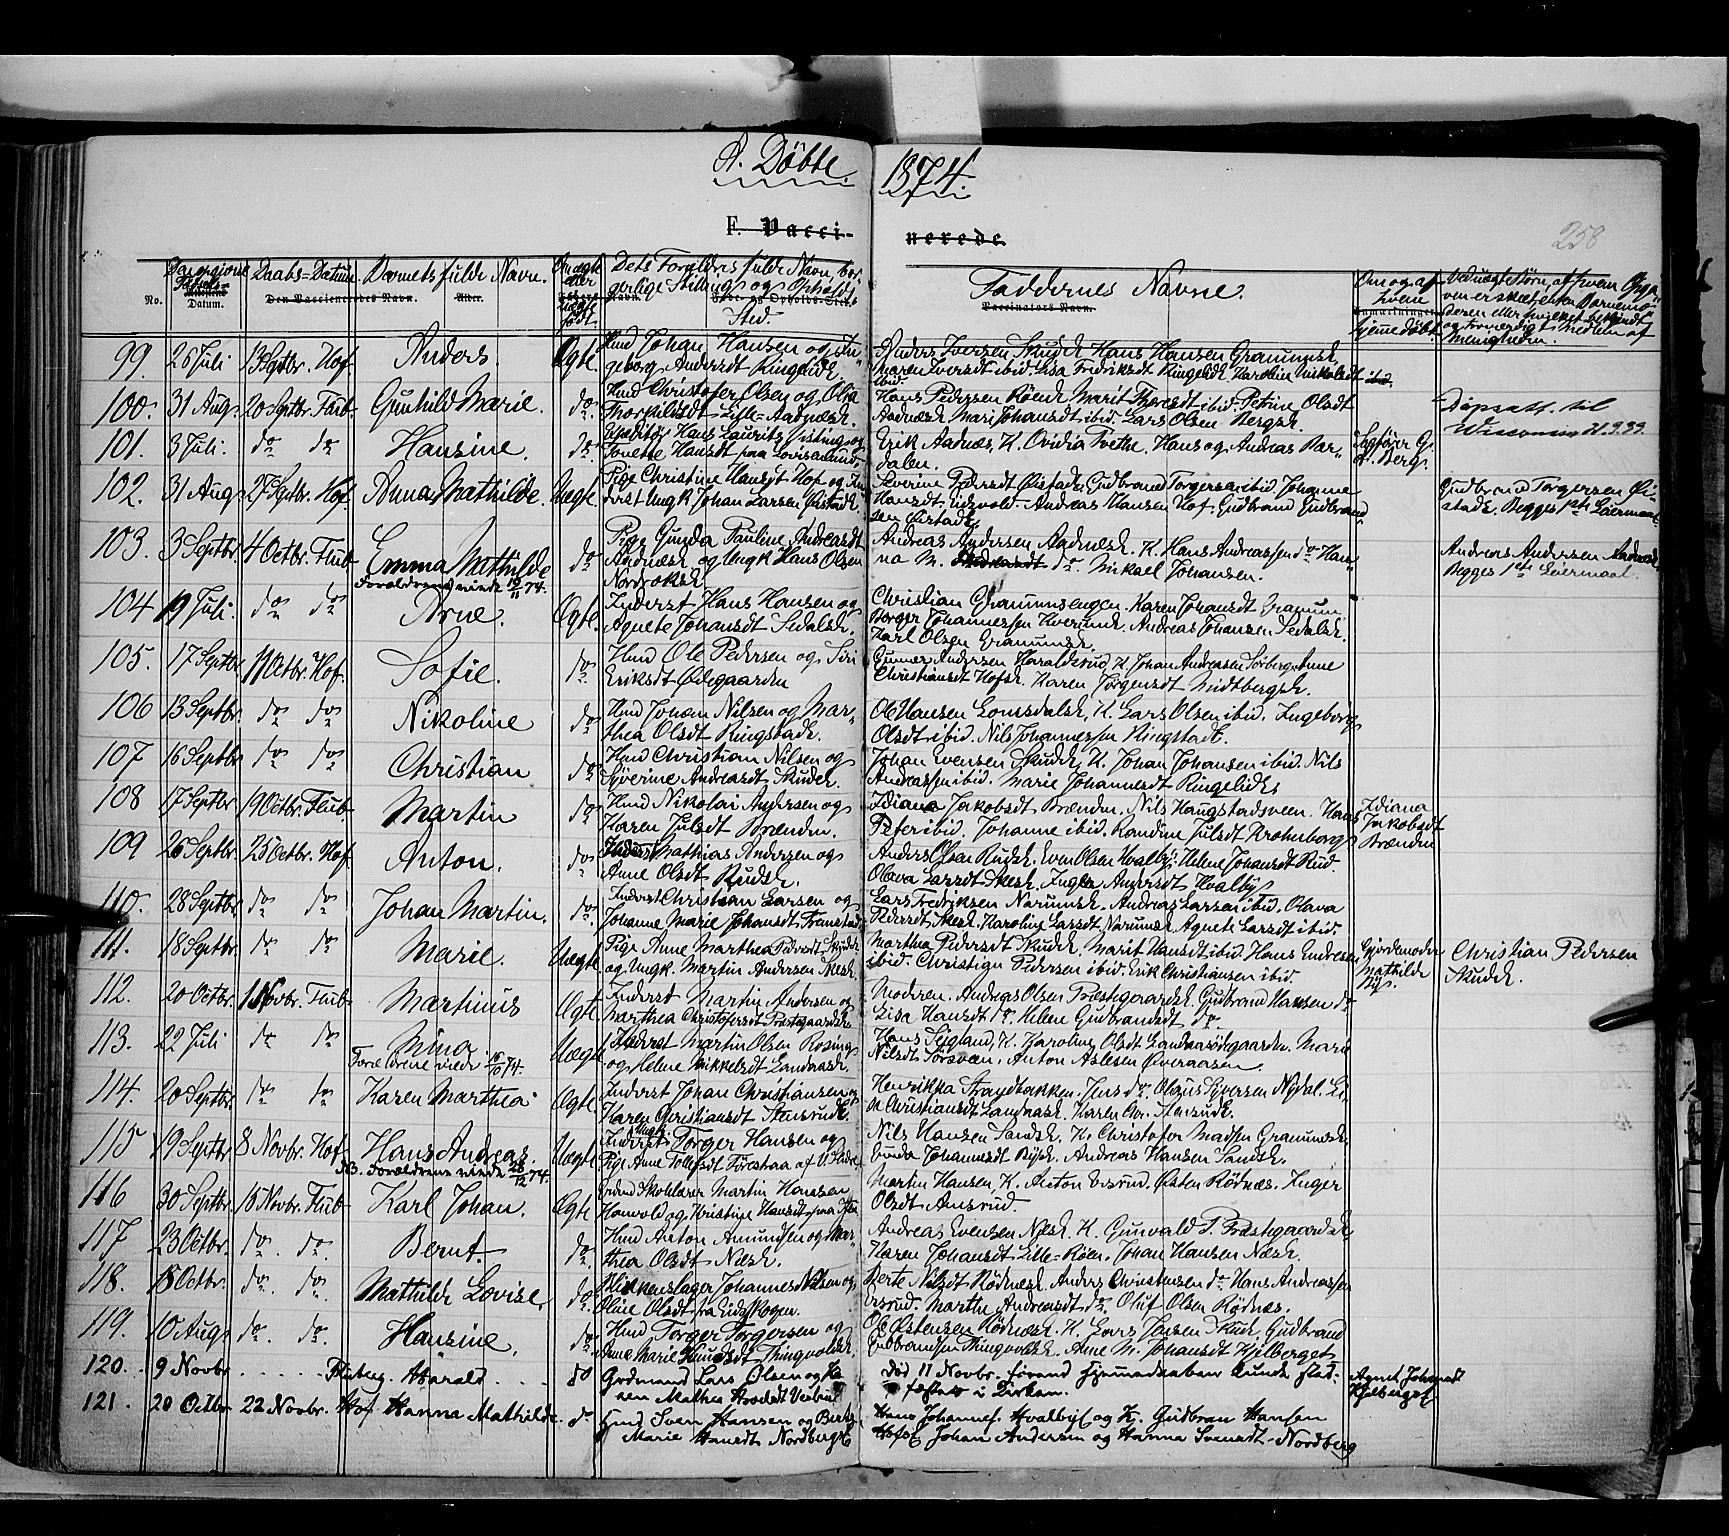 A. Döbte 1874.
F. Vacci-nerede.
258
No.
Datum.
Daabs=Datum
Barnets fulde Navn.
Den Vaccineredes Navn.
Alter.
Dets Forældres fulde Navn, bor-
gerlige Stilling og Opholds
Sted.
Faddernes Navne.
Vaccinators Navn.
hjemmedöbt.
99. 26 Juli 13 Septbr. Hof Anders. Ægte. Gmd Johan Hansen og In-
geborg Andersdt Ringelidk.
Anders Iversen Skudsk. Hans Hansen Granumsk.
Maren Iversdt ibid. Lisa Fredriksdt Ringelidk. Karoline Nikolaidt
ibid.
100. 31 Aug. 20 Septbr. Flub. Gunhild Marie. do Hmd Christofer Olsen og Olia
Thorkildsdt Lille=Aadnæsk.
Hans Pedersen Röensk. Marit Thoresdt ibid. Petrine Olsdt
Aadnæsk. Mari Johansdt ibid. Lars Olsen Bergsk.
Döpsatt. til
Wisconsin 21.9.39.
101. 3 Juli. do do Hansine. do Hans Laurits
Tonette Hansdt paa Lovisenlund.
Erik Aadnæs, K. Ovidia Tvethe. Hans og Andreas Bar-
dalen.
102. 31 Aug. 27 Septbr. Hof. Anna Mathilde. Uægte Pige Christine Hansdt Hof og In-
derst Ungk Johan Larsen Öistadk.
Severine Pedersdt Öistadk. Gudbrand Torgersen ibid. Johanne
Hansdt Eidsvold. Andreas Hansen Hof. Gudbrand Gudbrand-
sen Öistadk.
Gudbrand Torgersen Öi-
stadk. Begges 1ste Leiermaal.
103. 3 Septbr. 4 Octbr. Flub. Emma Mathilde do Pige Gunda Pauline Andreasdt
Aadnæsk. og Ungk Hans Olsen
Nordroksk.
Forældrene viede 19/11 74.
Andreas Andersen Aadnæsk. K. Hans Andreassen do Han-
na M. do Mikael Johansen.
Andreas Andersen Aadnæsk
Begges 1ste Leiermaal.
104 19 Juli. do do Arne. Ægte. Inderst Hans Hansen og
Agnete Johansdt Sedalsk.
Christian Granumsengen. Karen Johansdt Granum
Borger Johannessen Kverumsk. Andreas Johansen Sedalsk.
Karl Olsen Granumsk.
105. 17 Septbr. 11 Octbr. Hof. Sofie. do Hmd Ole Pedersen og Siri
Eriksdt Ödegaarden
Gunner Andersen Haraldsrud, K. Johan Andreasen Sorberg. Anne
Christiansdt Hofsk. Karen Jörgensdt Midtbergsk.
106 13 Septbr. do do Nikoline do Hmd Johan Nilsen og Mar-
thea Olsdt Ringstadk.
Ole Hansen Lomsdalsk, K. Lars Olsen ibid. Ingeborg
Olsdt ibid. Nils Johannessen Ringstadk.
107 16 Septbr do do Christian do Hmd Christian Nilsen og
Syverine Andreasdt Skudsk.
Johan Evensen Skudsk, K. Johan Johansen ibid. Nils
Andreassen ibid. Marie Johannesdt Ringelidk.
108 17 Septbr. 19 Octbr. Flub- Martin do Hmd Nikolai Andersen og
Karen Julsdt Brænden.
Idiana Jakobsdt Brænden. Nils Haugstadsveen. Hans
Peter ibid. Johanne ibid. Randine Julsdt Krohnborg.
Idiana
Jakobsdt
Brænden
109 26 Septbr. 25 Octbr. Hof Anton. do Inderst Mathias Andersen og
Anne Olsdt Rudsk.
Anders Olsen Rudsk. Even Olsen Hvalby. Helene Johansdt Rud.
Olava Larsdt Skesk. Inger Andersdt Hvalby.
110. 28 Septbr. do do Johan Martin. do Inderst Christian Larsen og
Johanne Marie Johansdt Framstad
Lars Fredriksen Narumsk. Andreas Larsen ibid. Olava
Pedersdt Skesk. Karoline Larsdt Narumsk. Agnete Larsdt ibid.
111. 18 Septbr. do do Marie. Uægte Pige Anne Marthea Pedersdt Skudsk
og Ungk. Martin Andersen Skesk
Marthea Pedersdt Skudsk. Marit Hansdt ibid. Hans Endresen
ibid. Christian Pedersen ibid. Erik Christiansen ibid.
Gjordemoder
Mathilde
Christian Pedersen
Skudsk.
112. 20 Octbr. 1 Novbr. Flub Martinus Ægte Inderst Martin Andersen og
Marthea Christofersdt Præstegaardsk.
Moderen. Andreas Olsen Præstegaardsk. Gudbrand Hansen do
Lisa Hansdt do. Helene Gudbrandsdt do
113. 22 Juli do do Mina Uægte Inderst Martin Olsen Rosing
og Helene Mikkelsdt Landaask.
Forældrene viede 16/10 74.
Hans Sigland, K. Karoline Olsdt Landaasödegaarden. Marie
Nilsdt Torsveen. Anton Aslesen Överaasen.
114. 20 Septbr do do Karen Marthea Ægte. Inderst Johan Christiansen og
Karen Christiansdt Stensrudk.
Henrikka Strandbakken. Jens do. Olaus Syversen Nydal. Li-
se Christiansdt Landaask. Karen Chr. Stensrudk.
115 19 Septbr 8 Novbr. Hof. Hans Andreas. Uægte Inderst Torger Hansen og
Pige Anne Tollefsdt
NB. Forældrene viede 28/12 74.
Nils Hansen Sandsk. K. Christofer Madsen Granumsk.
Gunda Johannesdt Bjsk. Andreas Hansen Sandsk.
116 30 Septbr. 15 Novbr. Flub- Karl Johan. Ægte Skolelærer Martin Hansen
Haavold og Kristine Hansdt
Martin Hansen, K. Anton Evsrud. Östen Rödnæs. Inger
Olsdt Amsrud.
117 23 Octbr. do do Bernt. do Hmd Anton Amundsen og Mar-
thea Olsdt Næsk.
Andreas Evensen Næsk. K. Gunvald P. Præstegaardsk.
Karen Johansdt Lille=Röen. Johan Hansen Næsk.
118. 18 Octbr. do do Mathilde Lovise. do Blikkenslager Johannes Nilsen og
Oline Olsdt fra Eidskogen.
Berte Nilsdt Rödnæsk. Anders Christensen do Hans Andreassen
Evsrud. Marthe Andreasdt do. Oluf Olsen Rödnæs.
119. 10 Aug. do do Hansine. do Hmd Torger Torgersen og
Anne Marie Knudsdt Thingvoldsk.
Ole Östensen Rödnæsk. K. Lars Jensen Skud. Gudbrand
Gudbrandsen Thingvoldsk. Anne M. Johansdt Kjelberget
120. 9 Novbr Fluberg. Harald do Gmd Lars Olsen og Ka-
ren Mathea
Död 11 Novbr. förend Hjemmedaaben kunde stad-
fæstes i Kirken.
Agnet Johansdt
Kjelberget
121. 20 Octbr 22 Novbr. Hof Hanna Mathilde. do Hmd Sven Hansen og Berthe
Marie Hansdt Nordbergsk
Hans Johannes. Hvalbysk og K. Gudbran Hansen
Hofsk. Johan Andersen og Hanna Svensdt Nordberg